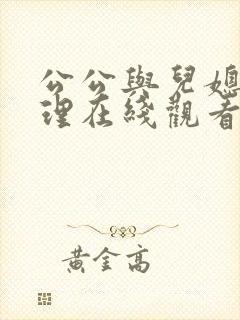 公公與兒媳
理在綫觀看
黃金高